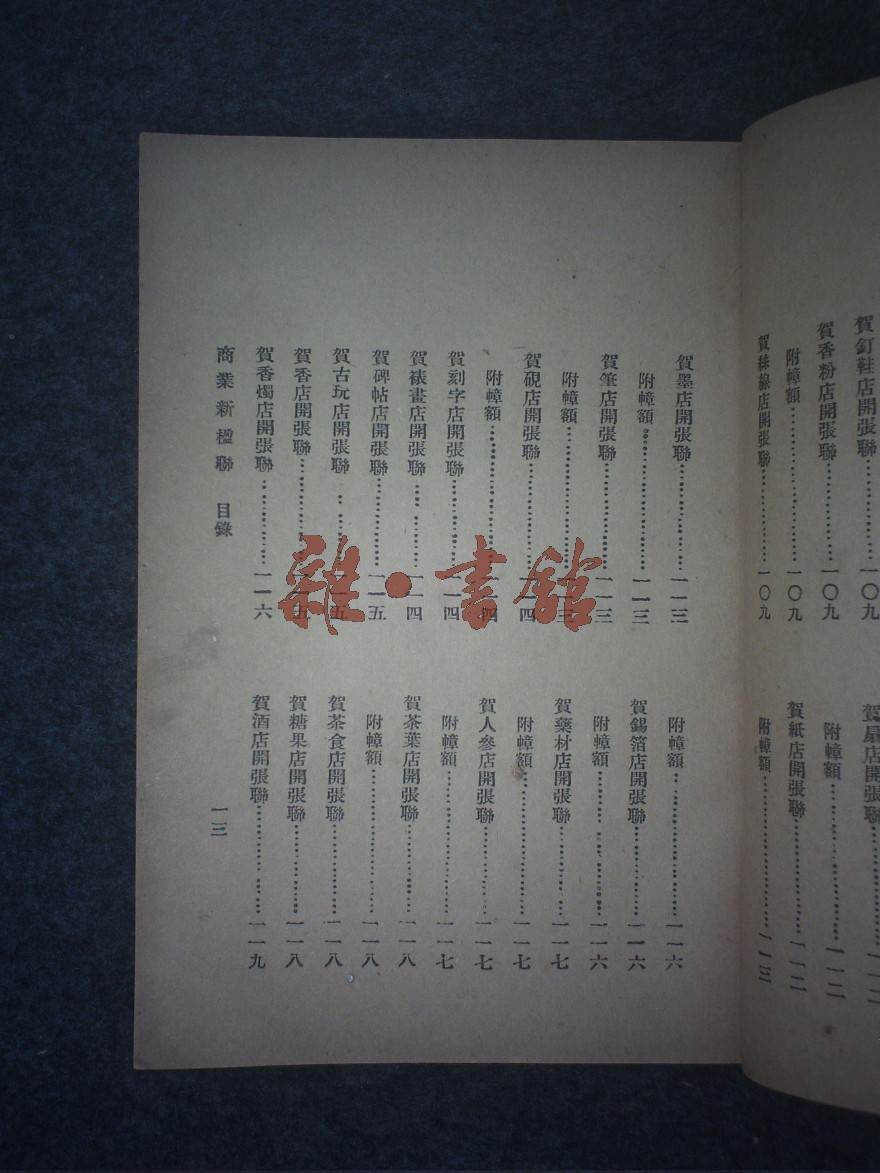 賀釘鞋店開張聯……………一〇九
賀香粉店開張聯……………一〇九
附幛額……………一〇九
賀絲線店開張聯……………一〇九
賀扇店開張聯……………一一二
附幛額……………一一二
賀紙店開張聯……………一一二
附幛額……………一一三
賀墨店開張聯……………一一三
附幛額……………一一三
賀筆店開張聯……………一一三
附幛額……………一一三
賀硯店開張聯……………一一四
附幛額……………一一四
賀刻字店開張聯……………一一四
賀裱畫店開張聯……………一一四
賀碑帖店開張聯……………一一五
賀古玩店開張聯……………一一五
賀香店開張聯……………一一五
賀香燭店開張聯……………一一六
附幛額……………一一六
賀錫箔店開張聯……………一一六
附幛額……………一一六
賀藥材店開張聯……………一一七
附幛額……………一一七
賀人參店開張聯……………一一七
附幛額……………一一七
賀茶葉店開張聯……………一一八
附幛額……………一一八
賀茶食店開張聯……………一一八
賀糖果店開張聯……………一一八
賀酒店開張聯……………一一九
商業新楹聯 目錄 一三
雜·書館